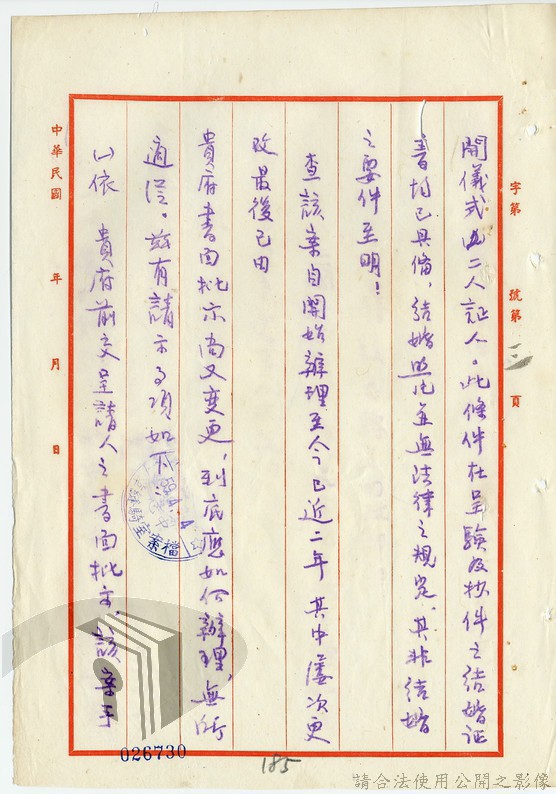 字第 號第 頁
開儀式及二人証人。此條件在呈驗及抄件之結婚证
書均已具備,結婚照片並無法律之規定,其非結婚
之要件至明!
查該案自開始辦理至今已近二年其中屢次更
改最後已由
貴府書面批示尚又變更,到底應如何辦理,無所
適從。茲有請示事項如下:
(一)依 貴府前交呈請人之書面批示,該案手
中華民國 年 月 日
檔案室
026730
185
請合法使用公開之影像